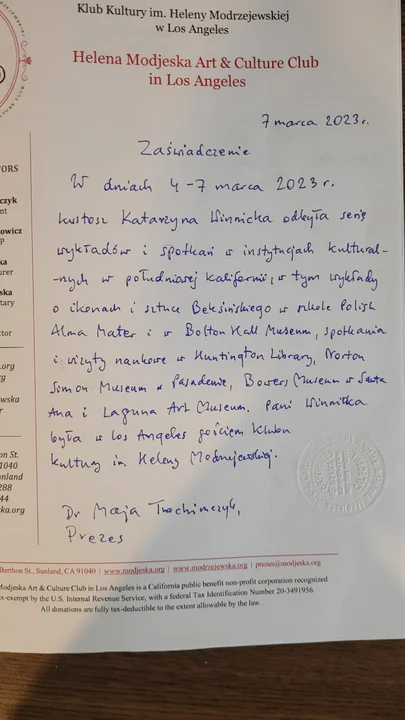 Klub Kultury im. Heleny Modrzejewskiej
w Los Angeles
Helena Modjeska Art & Culture Club
in Los Angeles
7 marca 2023r.
Zaświadczenie
W dniach 4-7 marca 2023r.
kustosz Katarzyna Winnicka odbyła serię
wykładów i spotkań w instytucjach kultural-
nych w południowej Kalifornii, w tym wykłady
o ikonach i sztuce Beksińskiego w szkole Polish
Alma Mater i w Bolton Hall Museum, spotkania
i wizyty naukowe w Huntington Library, Norton
Simon Museum w Pasadenie, Bowers Museum w Santa
Ana i Laguna Art Museum. Pani Winnicka
była w Los Angeles gościem Klubu
Kultury im. Heleny Modrzejewskiej.
Dr Maja Trochimczyk,
Prezes
ORS
czyk
nt
owicz
P
ka
urer
ska
tary
tor
.org
rg
wska
r
on St.
1040
unland
288
44
ka.org
Berthon St., Sunland, CA 91040 | www.modjeska.org | www.modrzejewska.org | prezes@modjeska.org
Modjeska Art & Culture Club in Los Angeles is a California public benefit non-profit corporation recognized
x-exempt by the U.S. Internal Revenue Service, with a federal Tax Identification Number 20-3491956.
All donations are fully tax-deductible to the extent allowable by the law.